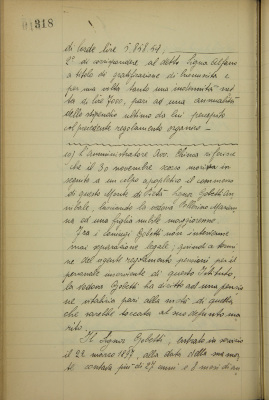 318
di lorde lire 5.868.64.
2° di corrispondere al detto Signor
a titolo di gratificazione di buonuscita e
per una volta tanto una indennità
di lire 7000, pari ad una annualità
dello stipendio ultimo da lui percepito
col precedente regolamento organico -
10) L'amministratore Avv. riferisce
che il 30 novembre scorso moriva in
seguito a un colpo apoplettico il commesso
di questo Monte di Pietà Signor Gobetti An-
nibale, lasciando la vedova Marian-
na ed una figlia nubile maggiorenne.
Tra i coniugi Gobetti non intervenne
mai separazione legale; quindi a termi-
ne del vigente regolamento pensioni per il
personale inserviente di questo Istituto,
la vedova Gobetti ha diritto ad una pensio-
ne vitalizia pari alla metà di quella
che sarebbe toccata al suo defunto ma-
rito.
Il Signor Gobetti, entrato in servizio
il 22 marzo 1897, alla data della sua mor-
te contava più di 27 anni e 8 mesi di